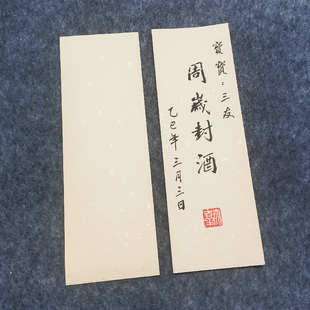 寳寶：三友
周歲封酒
乙巳年三月三日